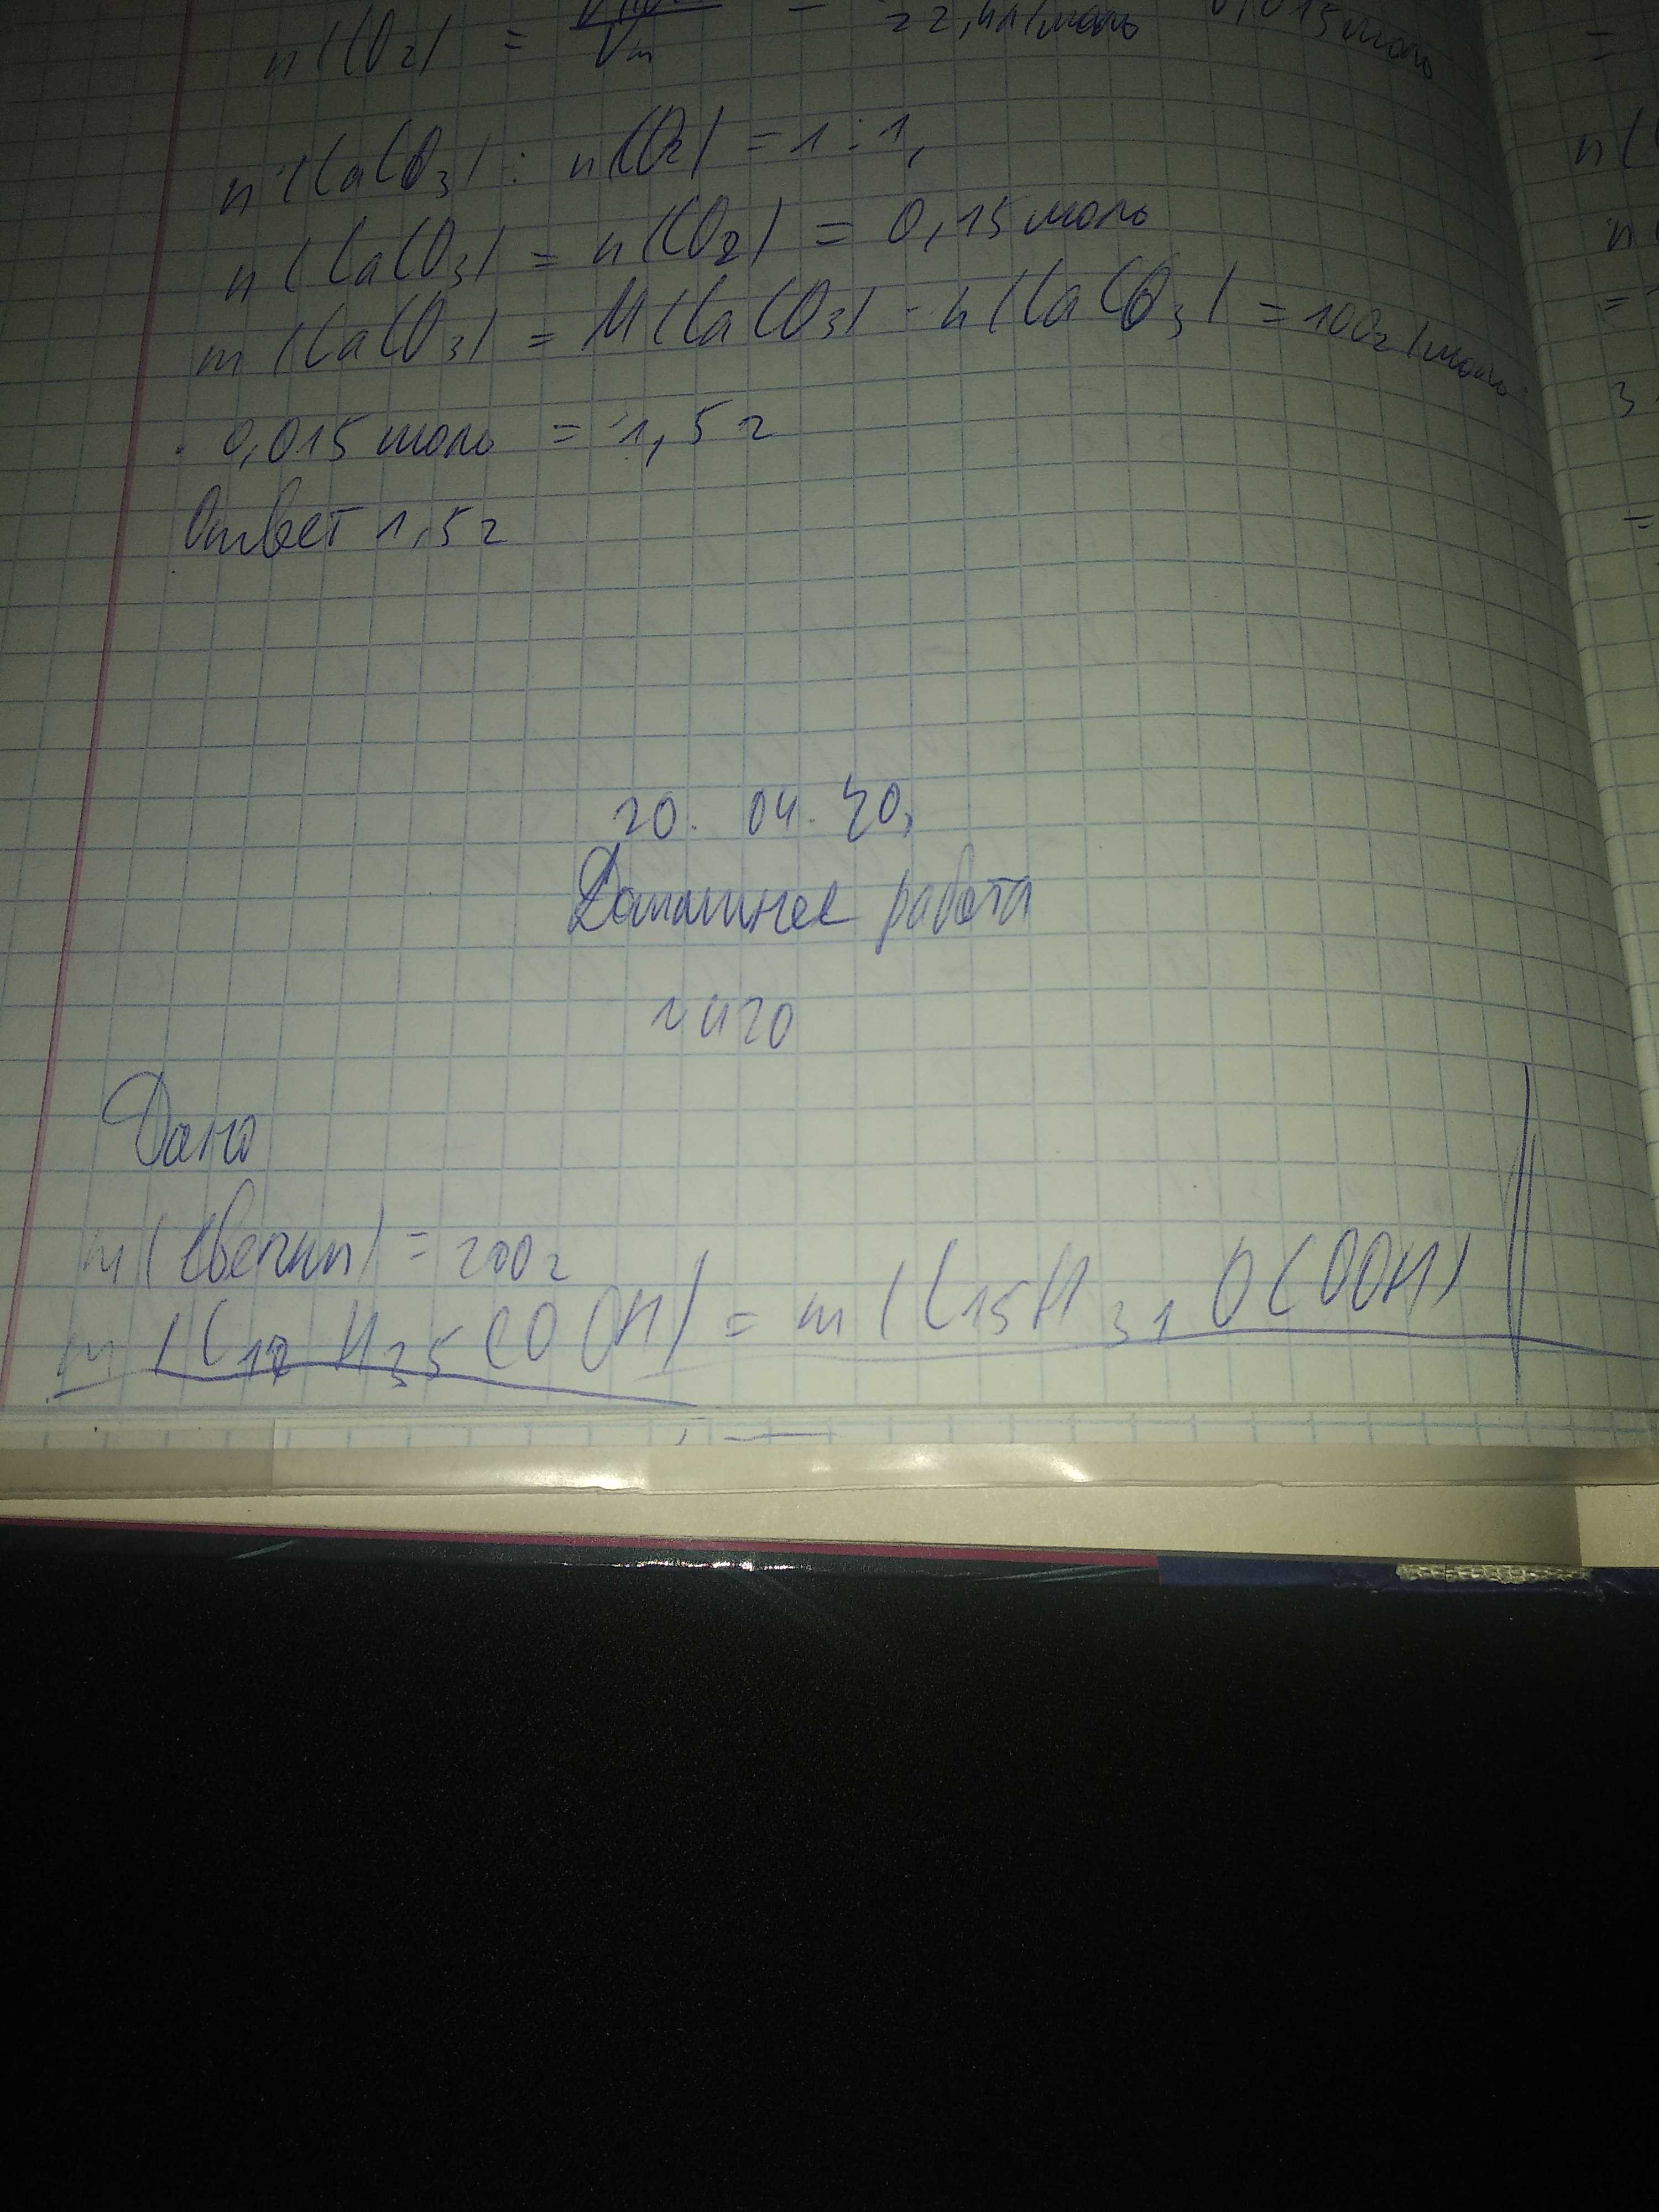 n(CO2) = Vm = 22,4л/моль 0,015моль
n(CaCO3) : n(CO2) = 1 : 1,
n(CaCO3) = n(CO2) = 0,15моль
m(CaCO3) = M(CaCO3) · n(CaCO3) = 100г/моль ·
· 0,015моль = 1,5г
Ответ 1,5г
20. 04. 20,
Домашнее работа
N420
Дано
m(свечи) = 200г
m(C17H35COOH) = m(C15H31OCOOH)
=
n(
n
=
3
=